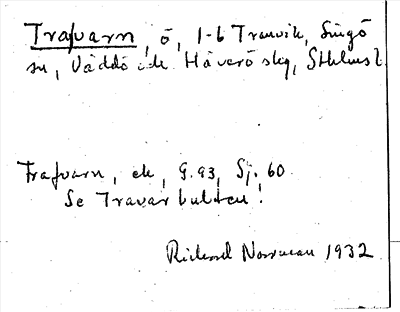 Trafvarn, ö, 1-6 Tranvik, Singö
sn, Väddö och Häverö skg, Sthlms l.
Trafvarn, ek, G. 93, Sj. 60
Se Travarbulten!
Rickard Norrman 1932